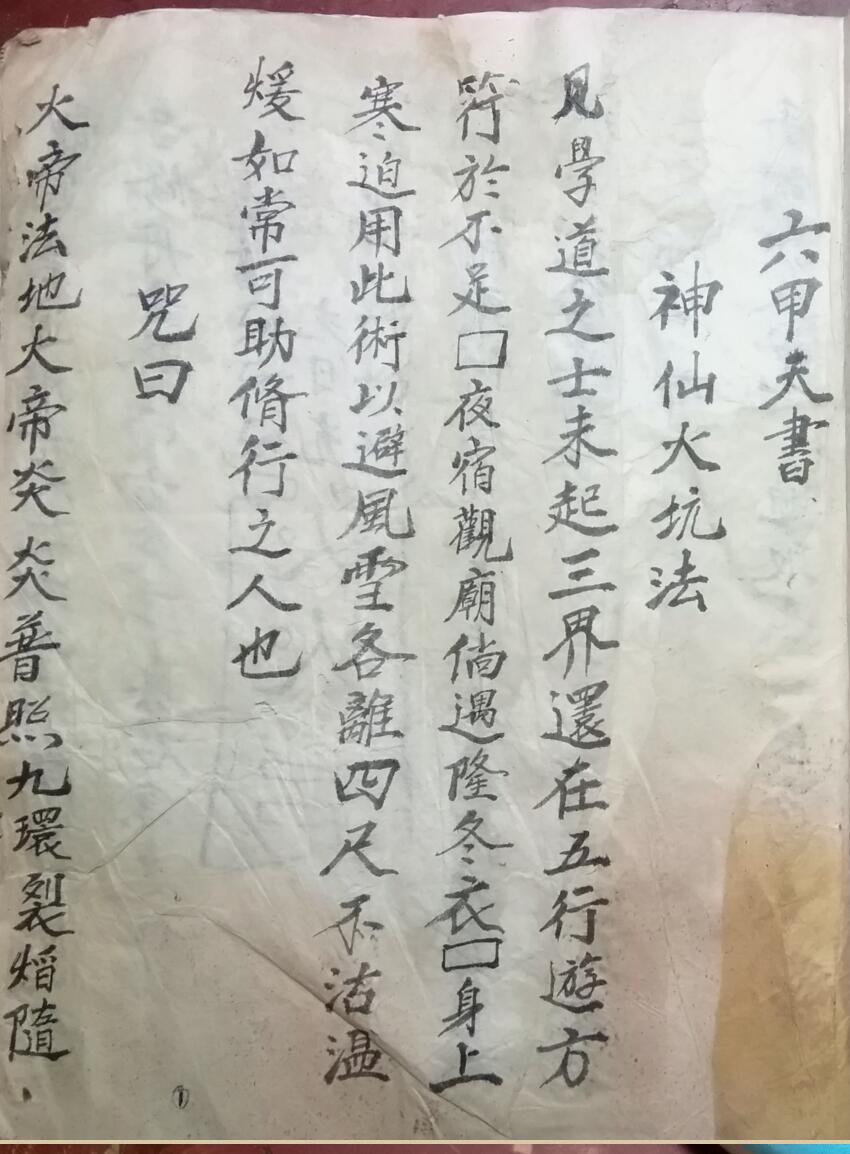 六甲天書
神仙火坑法
見學道之士未起三界還在五行遊方
符於不足□夜宿觀廟倘遇隆冬衣□身上
寒迫用此術以避風雪各離四尺不沾温
煖如常可助脩行之人也
咒曰
火帝法地大帝炎炎普照九環裂焰隨、
①